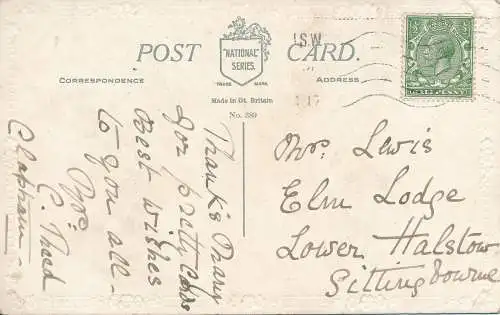 POST CARD.
"NATIONAL"
SERIES.
TRADE MARK
CORRESPONDENCE
ADDRESS
Made in Gt. Britain
No. 289
.S.W
Thanks Many
for pretty Cards
Best wishes
to you all -
Mrs
C. Theed
Clapham -
Mrs. Lewis
Elm Lodge
Lower Halstow
Sittingbourne